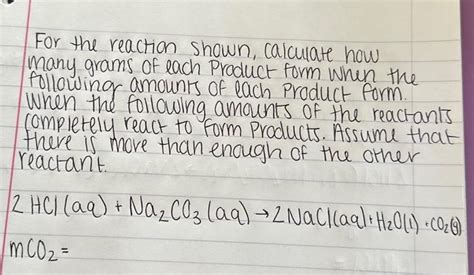 For the reaction shown, calculate how
many grams of each Product form when the
following amounts of each Product form.
When the following amounts of the reactants
completely react to form Products. Assume that
there is more than enough of the other
reactant.
2 HCl (aq) + Na₂CO₃ (aq) → 2 NaCl(aq) + H₂O(l) + CO₂(g)
mCO₂ =